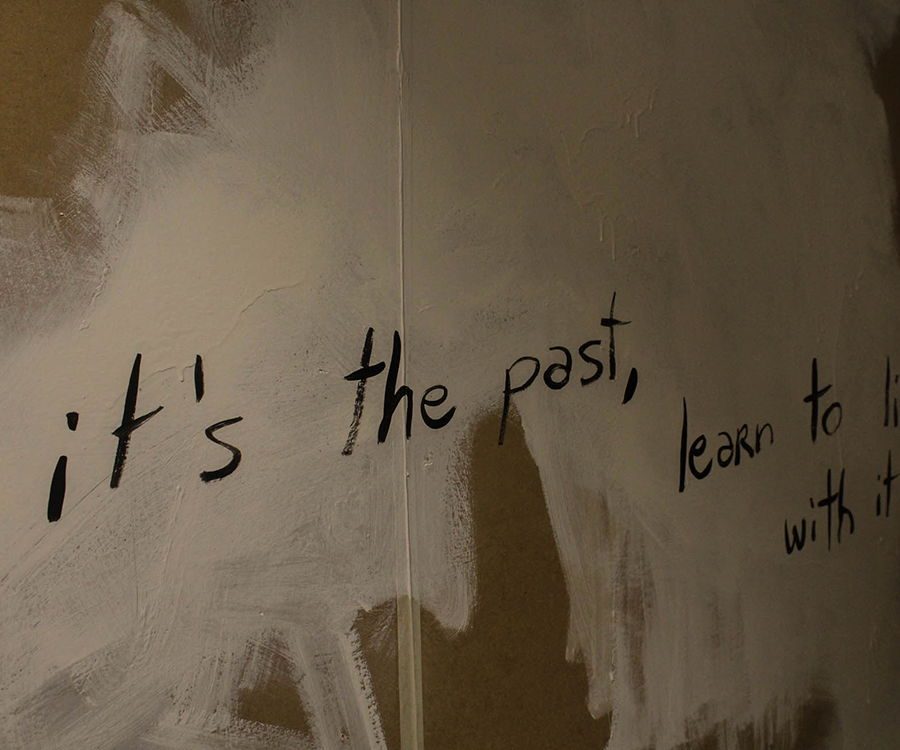 it's the past, learn to li
with it